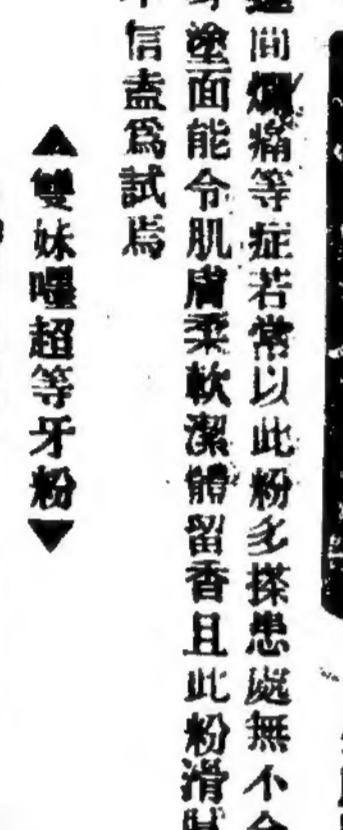 間爛痛等症若常以此粉多搽患處無不
塗面能令肌膚柔軟潔體留香且此粉滑膩
信盍爲試焉
▲雙妹嚜超等牙粉▼